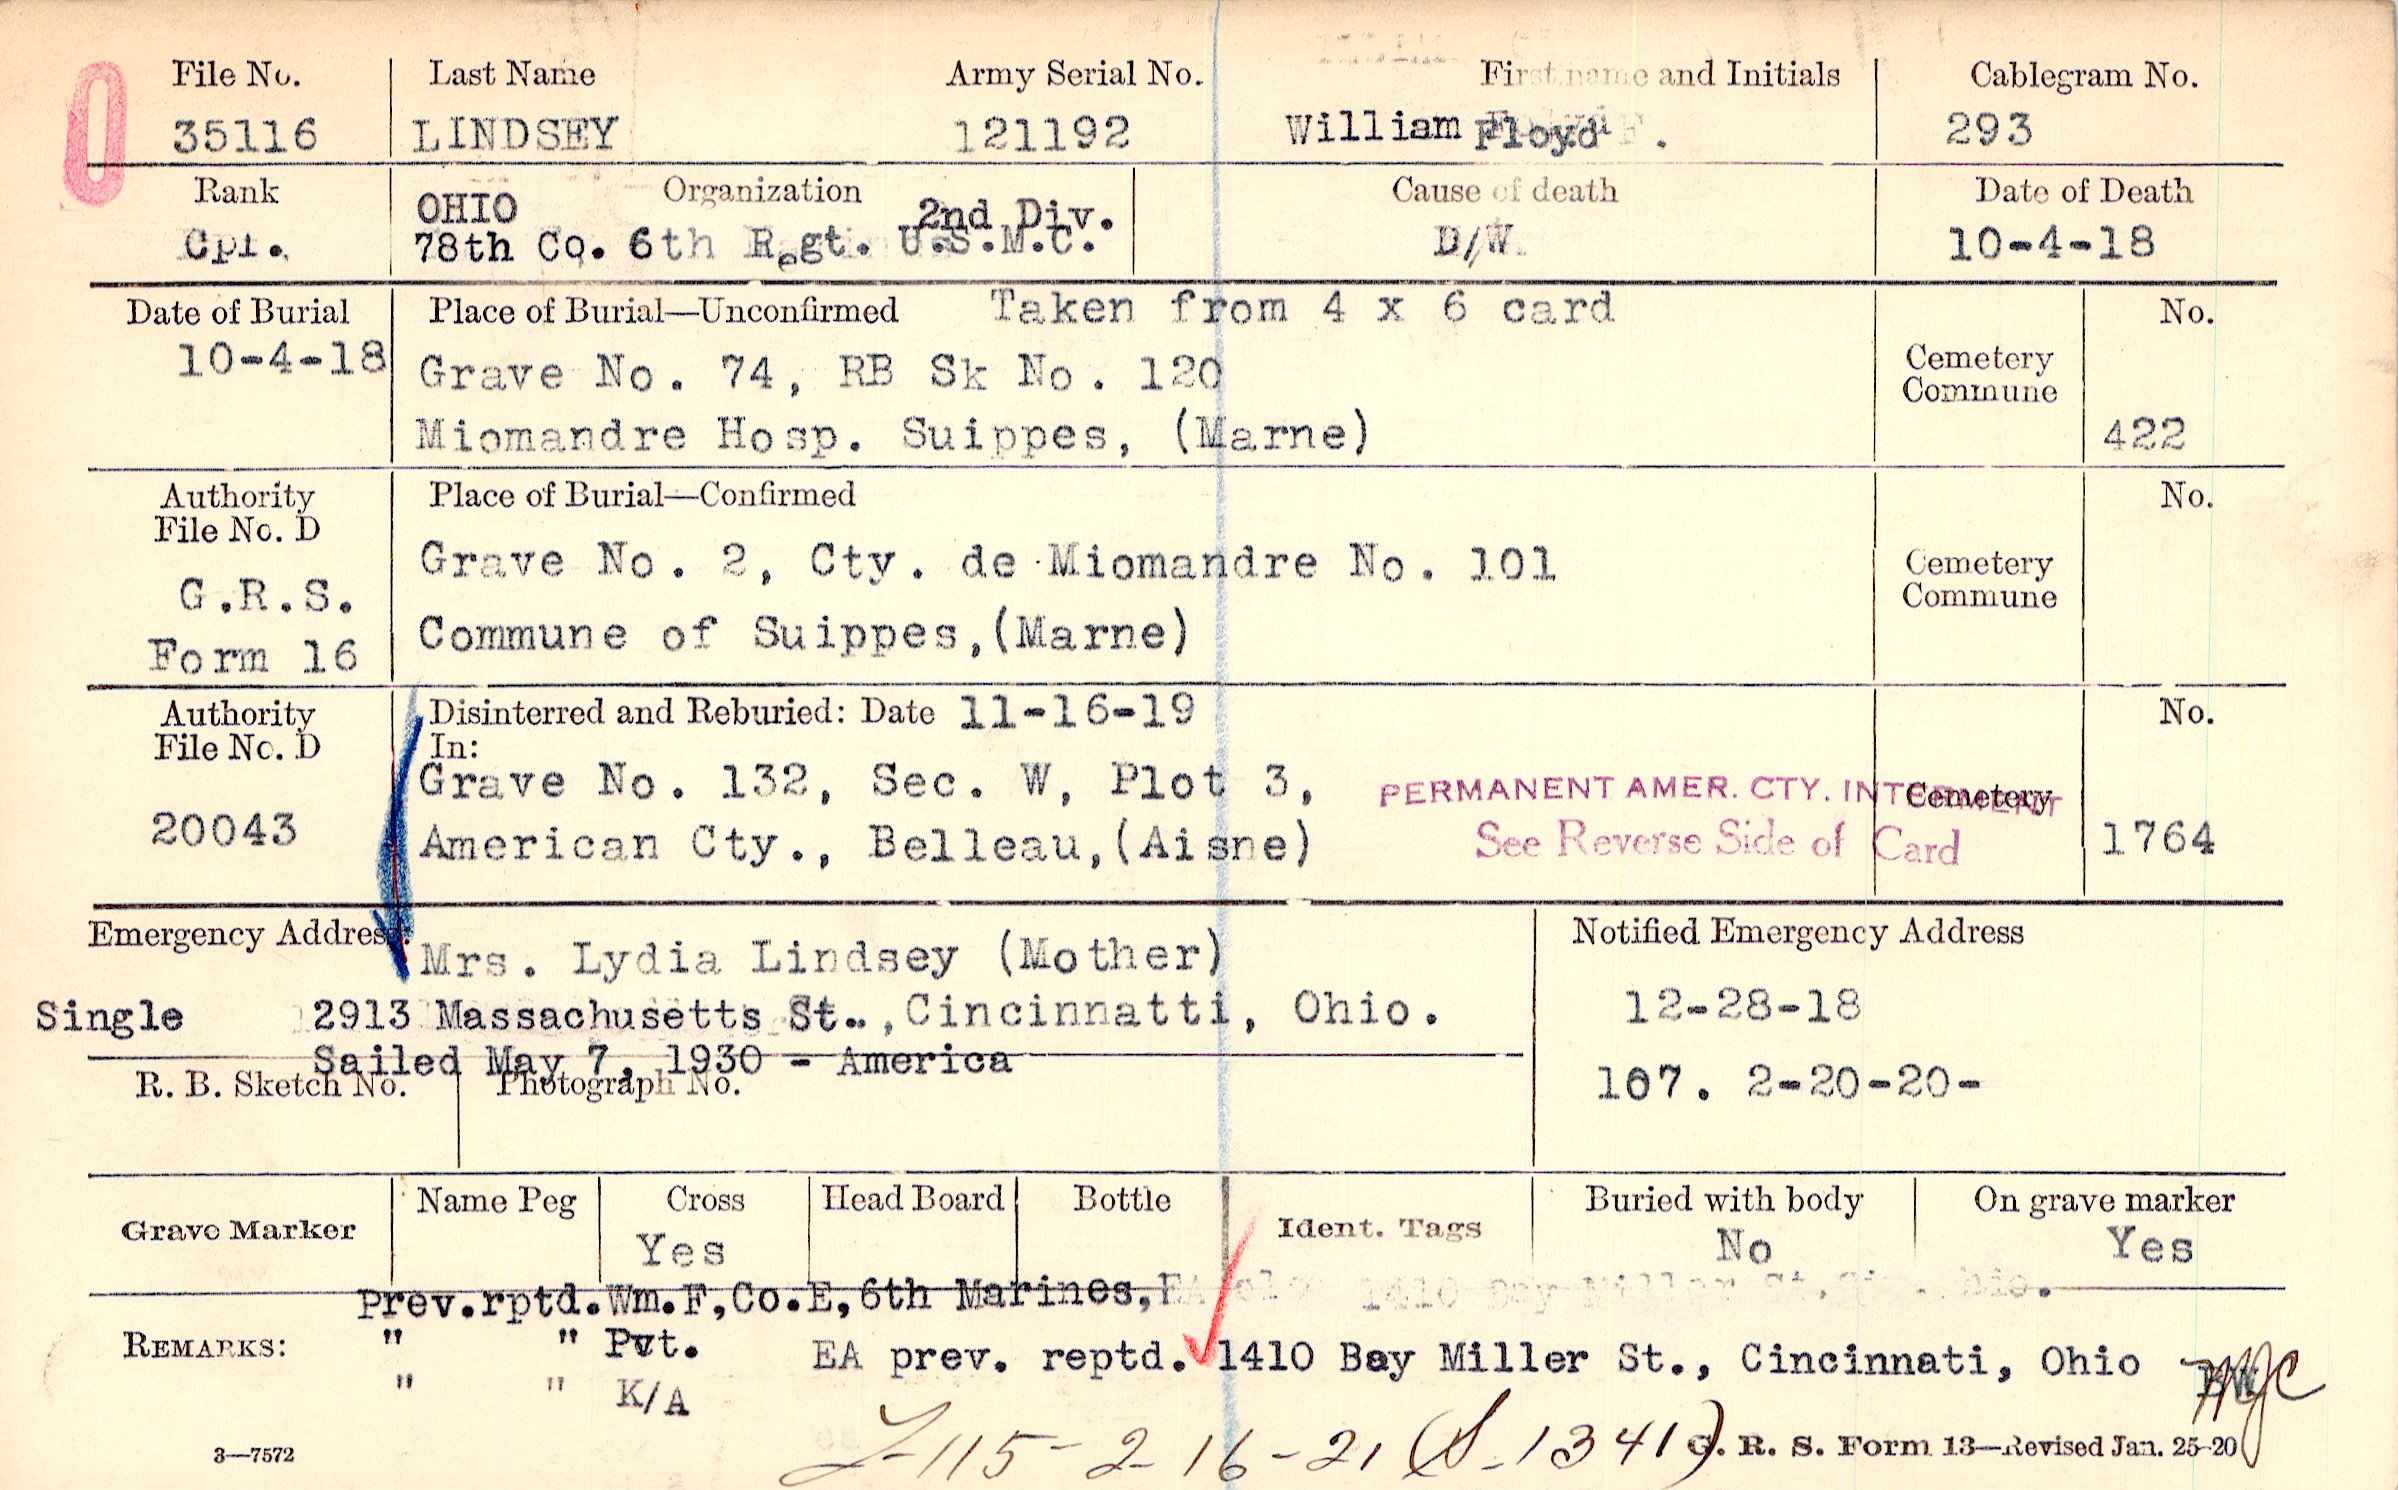 File No. Last Name Army Serial No. First name and Initials Cablegram No.
35116 LINDSEY 121192 William Floyd F. 293
Rank OHIO Organization 2nd Div. Cause of death Date of Death
Cpl. 78th Co. 6th Regt. U.S.M.C. D/W. 10-4-18
Date of Burial Place of Burial—Unconfirmed Taken from 4 x 6 card No.
10-4-18 Grave No. 74, RB Sk No. 120 Cemetery
Commune
Miomandre Hosp. Suippes, (Marne) 422
Authority Place of Burial—Confirmed No.
File No. D
Grave No. 2, Cty. de Miomandre No. 101 Cemetery
G.R.S. Commune
Form 16 Commune of Suippes,(Marne)
Authority Disinterred and Reburied: Date 11-16-19 No.
File No. D In:
Grave No. 132, Sec. W, Plot 3, PERMANENT AMER. CTY. INTERMENT Cemetery
20043 American Cty., Belleau,(Aisne) See Reverse Side of Card 1764
Emergency Address: Mrs. Lydia Lindsey (Mother) Notified Emergency Address
Single 2913 Massachusetts St.., Cincinnatti, Ohio. 12-28-18
Sailed May 7, 1930 - America
R. B. Sketch No. Photograph No. 107. 2-20-20-
Grave Marker Name Peg Cross Head Board Bottle Ident. Tags Buried with body On grave marker
Yes No Yes
Prev.rptd.Wm.F,Co.E,6th Marines,
REMARKS: " " Pvt. EA prev. reptd. 1410 Bay Miller St., Cincinnati, Ohio
" " K/A
L-115-2-16-21 (S-1341)
3—7572 G. R. S. Form 13—Revised Jan. 25-20